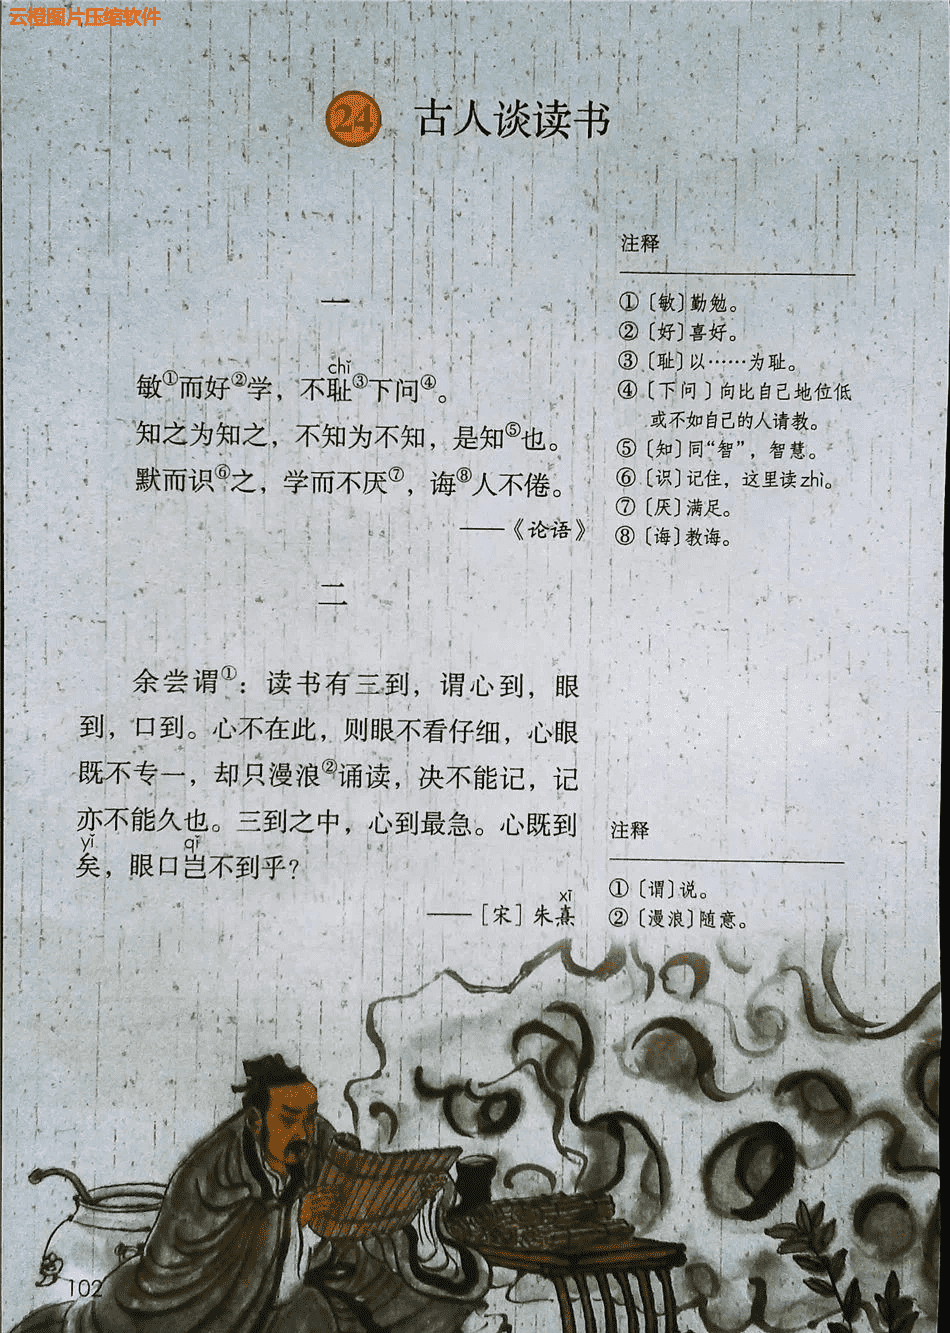 云橙图片压缩软件
24 古人谈读书
一
chǐ
敏①而好②学，不耻③下问④。
知之为知之，不知为不知，是知⑤也。
默而识⑥之，学而不厌⑦，诲⑧人不倦。
——《论语》
注释
①〔敏〕勤勉。
②〔好〕喜好。
③〔耻〕以……为耻。
④〔下问〕向比自己地位低
或不如自己的人请教。
⑤〔知〕同“智”，智慧。
⑥〔识〕记住，这里读zhì。
⑦〔厌〕满足。
⑧〔诲〕教诲。
二
余尝谓①：读书有三到，谓心到，眼
到，口到。心不在此，则眼不看仔细，心眼
既不专一，却只漫浪②诵读，决不能记，记
亦不能久也。三到之中，心到最急。心既到
yǐ qǐ
矣，眼口岂不到乎？
xī
——［宋］朱熹
注释
①〔谓〕说。
②〔漫浪〕随意。
102